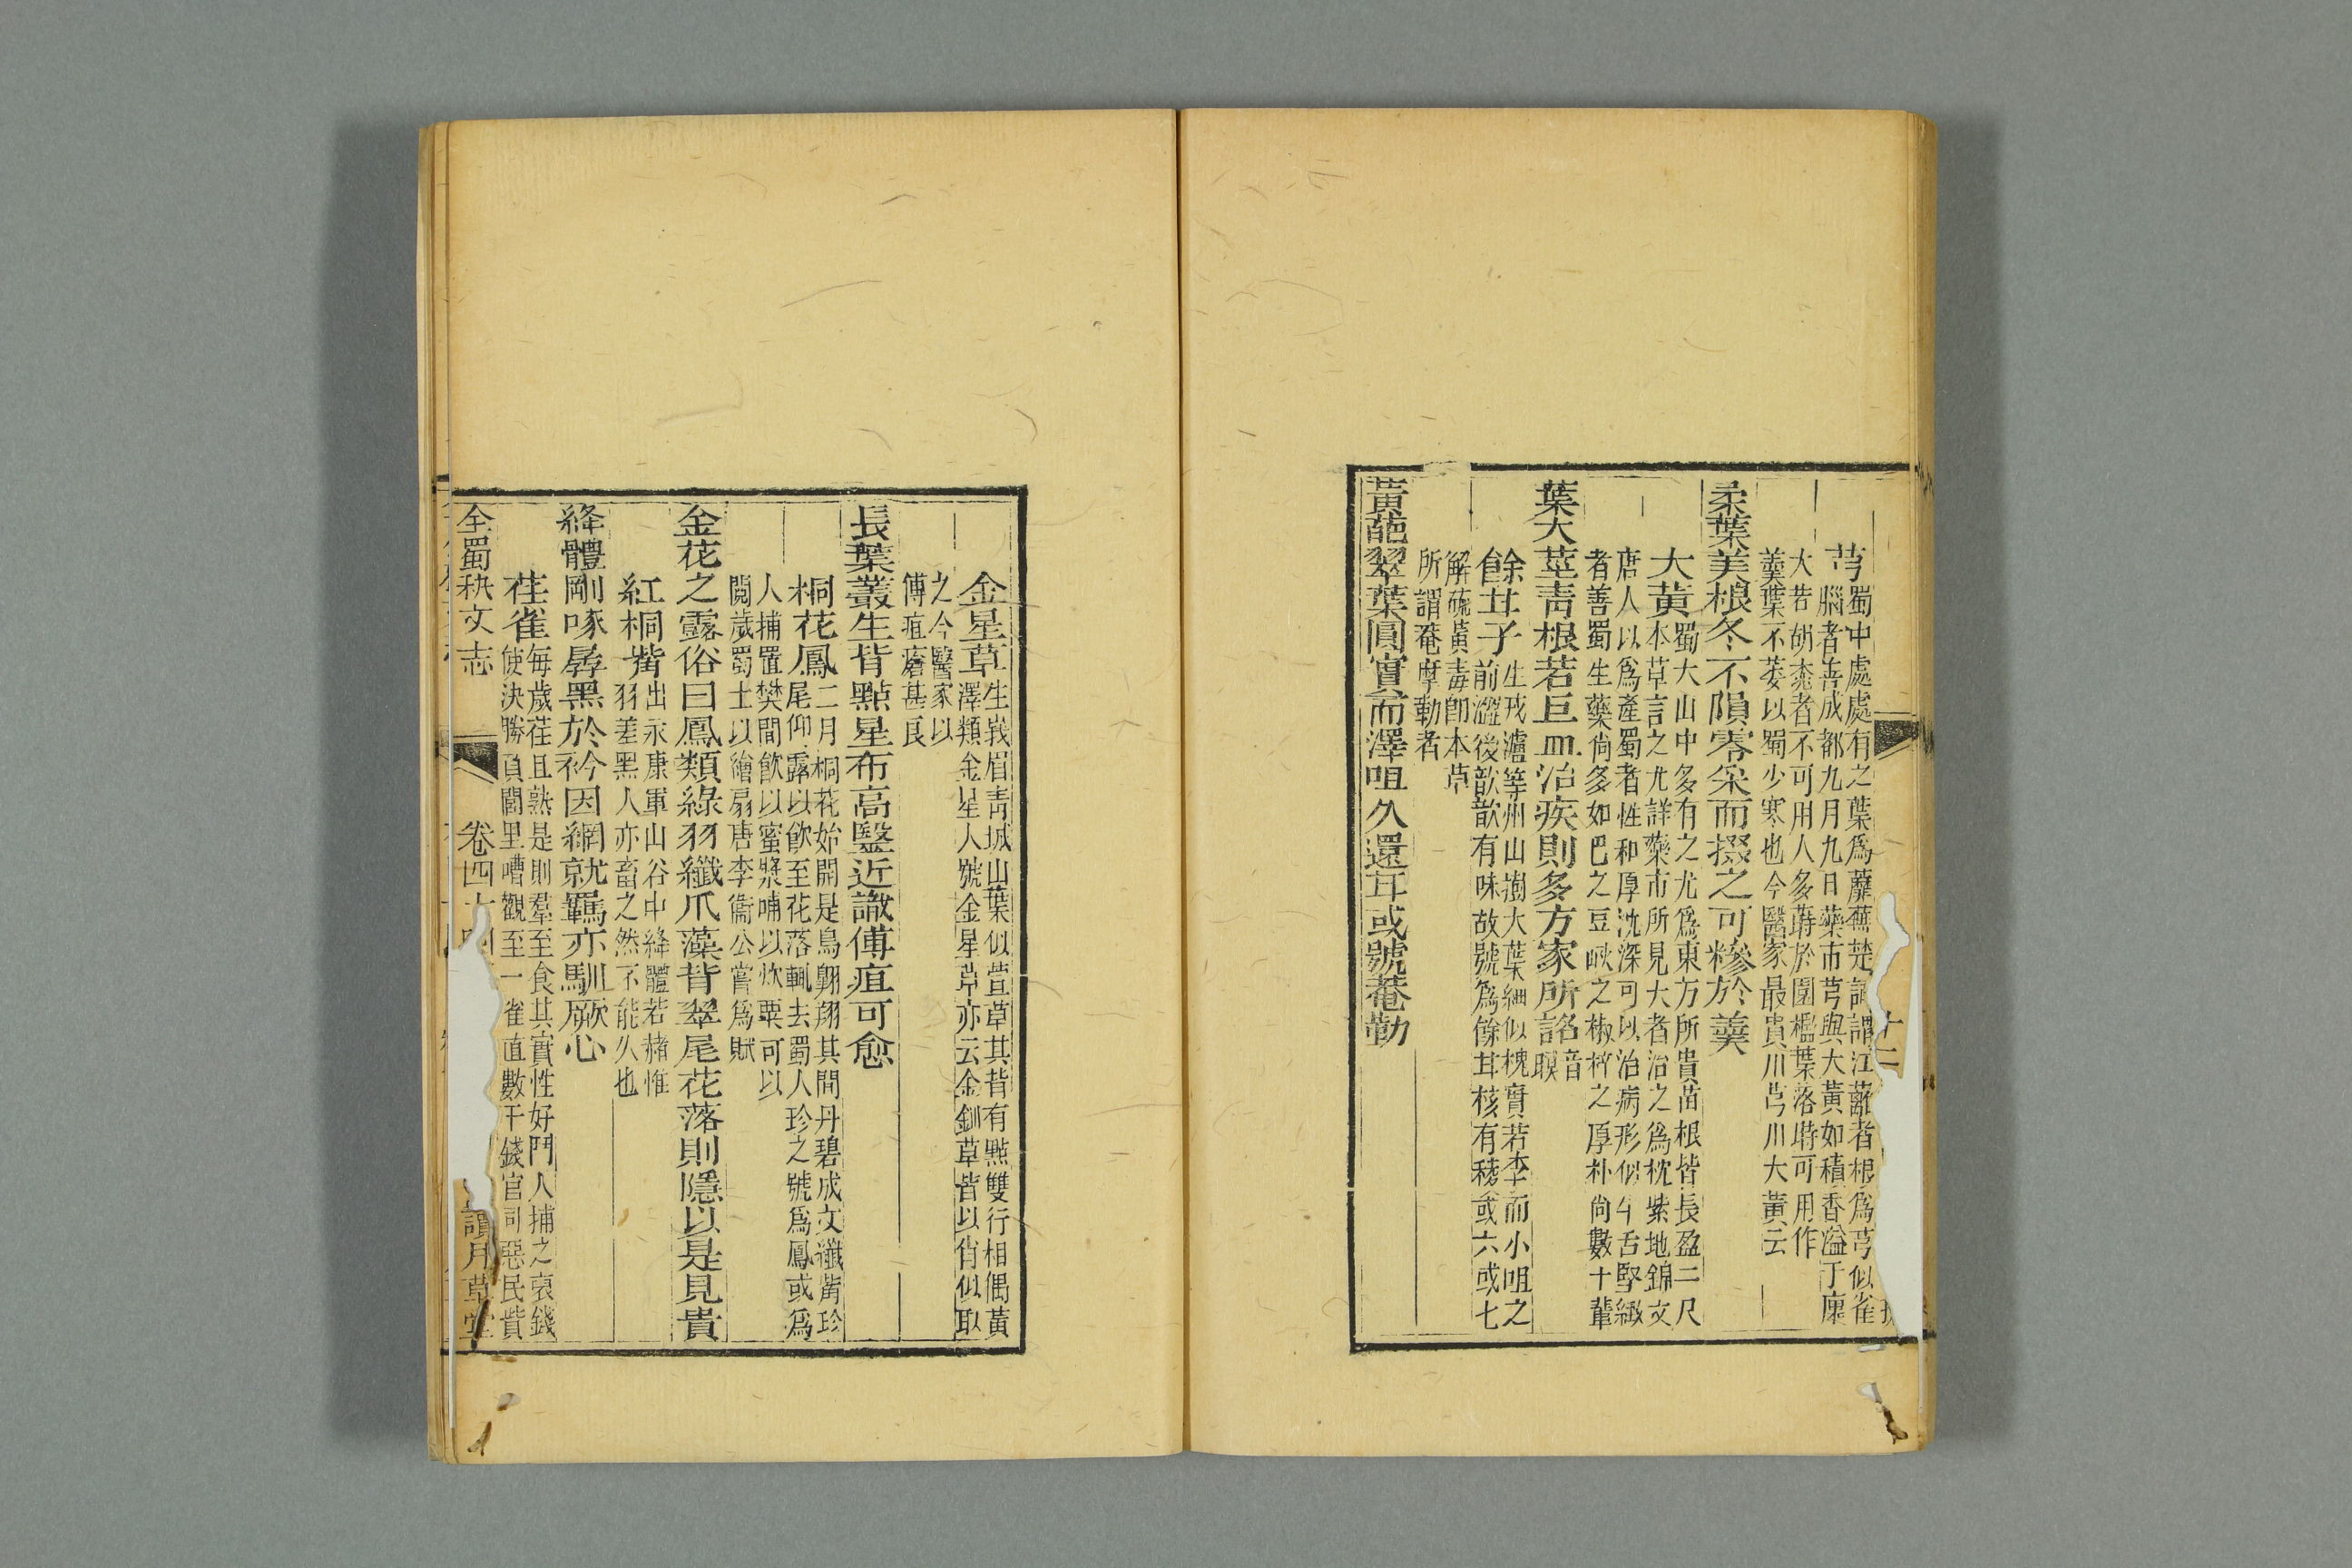 芎
蜀中處處有之葉爲蘼蕪楚謂江蘺者根爲芎似雀
腦者善成都九月九日藥市芎與大黃如積香溢于廛
大若胡桼者不可用人多蒔於園檻葉落時可用作
羹葉不萎以蜀少寒也今醫家最貴川芎川大黃云
柔葉美根冬不隕零采而掇之可糝於羹
大黃
蜀大山中多有之尤爲東方所貴苗根皆長盈二尺
本草言之尤詳藥市所見大者治之爲枕紫地錦文
唐人以爲產蜀者性和厚沈深可以治病形似牛舌堅緻
者善蜀生藥尙多如巴之豆峽之椒梓之厚朴尙數十輩
葉大莖靑根若巨皿治疾則多方家所詺
音
瞑
餘甘子
生戎瀘等州山樹大葉細似槐實若李而小咀之
前澀後歆歆有味故號爲餘甘核有稜或六或七
解硫黃毒卽本草
所謂菴摩勒者
黃葩翠葉圓實而澤咀久還甘或號菴勒
金星草
生峩眉靑城山葉似萱草其背有㸃雙行相偶黃
澤類金星人號金星草亦云金釧草皆以肖似取
之今醫家以
傅疽瘡甚良
長葉叢生背㸃星布高醫近識傅疽可愈
桐花鳳
二月桐花始開是鳥翺翔其間丹碧成文纖觜珍
尾仰露以飮至花落輒去蜀人珍之號爲鳳或爲
人捕置樊間飮以蜜漿哺以炊粟可以
閱歲蜀士以繪扇唐李衞公嘗爲賦
金花之露俗曰鳳類綠羽纖爪藻背翠尾花落則隱以是見貴
紅桐觜
出永康軍山谷中絳體若赭惟
羽差黑人亦畜之然不能久也
絳體剛啄㝷黑於衿因網就羈亦馴厥心
荏雀
每歲荏且熟是則羣至食其實性好鬥人捕之裒錢
使決勝負閭里嘈觀至一雀直數千錢官司惡民貲
全蜀秇文志
卷四十
讀月草堂